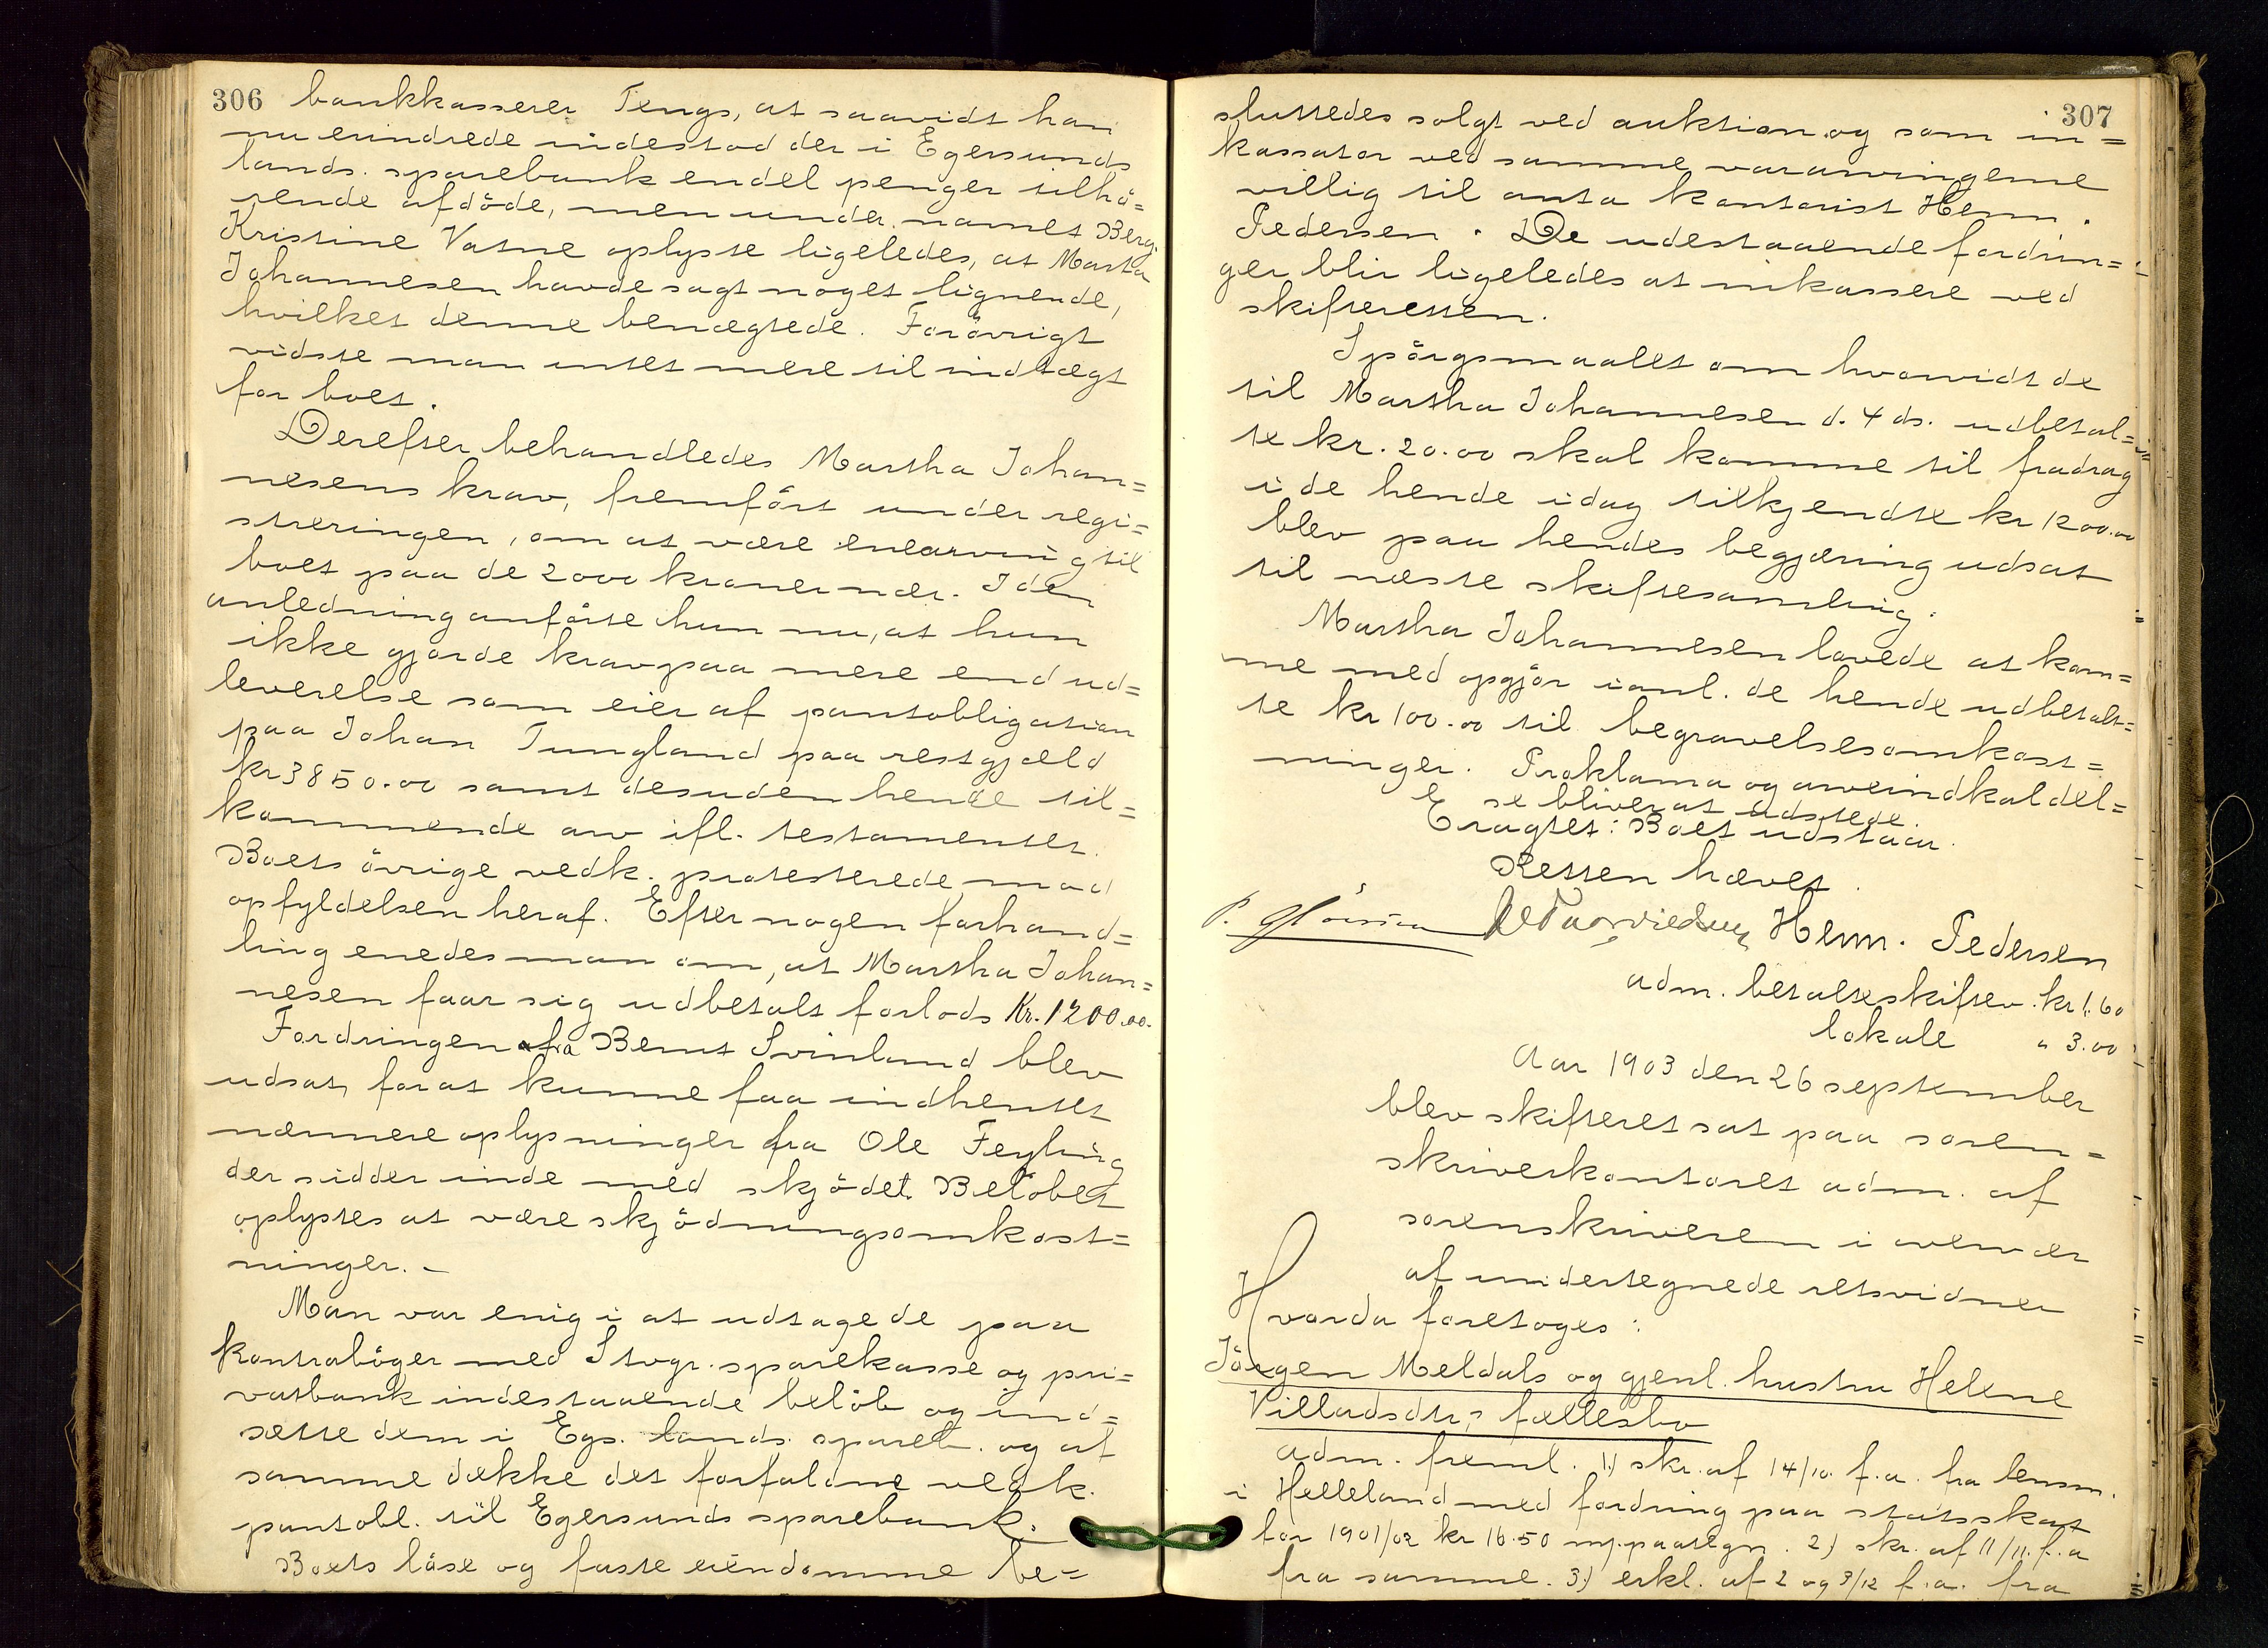 306 bankkasserer Tengs, at saavidt han
nu erindrede indestod der i Egersunds
lands. sparebank endel penger tilhö=
rende afdöde, men under namet Berg.
Kristine Vatne oplyste ligeledes, at Marta
Johannesen havde sagt noget lignende,
hvilket denne benægtede. Forövrigt
vidste man intet mere til indtægt
for boet.
Derefter behandledes Martha Johan=
nesens krav, fremfört under regi=
streringen, om at være enearving til
boet paa de 2000 kroner nær. I den
anledning anförte hun nu, at hun
ikke gjorde krav paa mere end ud=
leverelse som eier af pantobligation
paa Johan Tungland paa restgjæld
kr 3850.00 samt desuden hende til=
kommende arv ifl. testamentet.
Boets övrige vedk. protesterede mod
opfyldelsen heraf. Efter nogen forhand=
ling enedes man om, at Martha Johan=
nesen faar sig udbetalt forlods Kr. 1200.00.
Fordringen fra Bernt Svinland blev
udsat, for at kunne faa indhentet
nærmere oplysninger fra Ole Feyling
der sidder inde med skjödet. Belöbet
oplystes at være skjödningsomkost=
ninger. –
Man var enig i at udtage de paa
kontraböger med Stvgr. sparekasse og pri=
vatbank indestaaende belöb og ind=
sætte dem i Egs. lands. spareb. og af
samme dække det forfaldne vedk.
pantobl. til Egersunds sparebank.
Boets löse og faste eiendomme be=
307
sluttedes solgt ved auktion og som in=
kassator ved samme var arvingerne
villig til anta kontorist Herm.
Pedersen. De udestaaende fordrin=
ger blir ligeledes at inkassere ved
skifteretten.
Spörgsmaalet om hvorvidt de
til Martha Johannesen d. 4 ds. udbetal=
te kr. 20.00 skal komme til fradrag
i de hende idag tilkjendte kr 1200.00
blev paa hendes begjæring udsat
til næste skiftesamling.
Martha Johannesen lovede at kom=
me med opgjör i anl. de hende udbetalt=
te kr 100.00 til begravelsesomkost=
ninger. Proklama og arveindkaldel=
se bliver at udstede.
Eragtet: Boet udstaar.
Retten hævet.
Herm. Pedersen
adm. betalte skiftev. kr 1.60
lokale " 3.00
Aar 1903 den 26 september
blev skifteret sat paa soren=
skriverkontoret adm. af
sorenskriveren i overvær
af undertegnede retsvidner
Hvorda foretoges:
Jörgen Meldals og gjenl. hustru Helene
Villadsdtr,s fællesbo
Adm. freml. 1) skr. af 14/10. f.a. fra lensm.
i Helleland med fordring paa statsskat
for 1901/02 kr 16.50 m/ paategn. 2) skr. af 11/11. f.a
fra samme. 3) erkl. af 2 og 3/12 f.a. fra